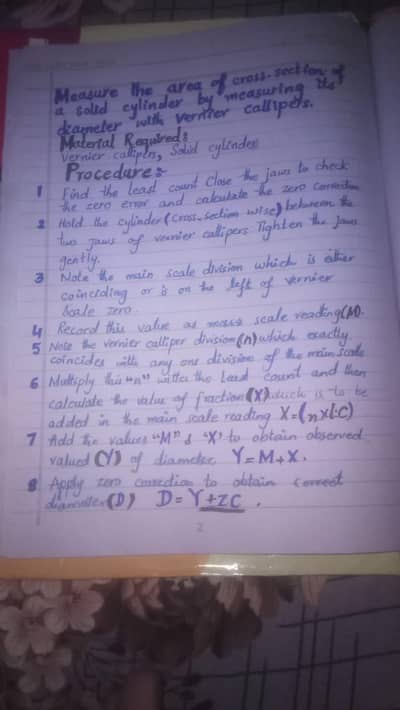 Measure the area of cross-section of
a solid cylinder by measuring its
diameter with vernier callipers.
Material Required:
Vernier callipers, Solid cylinder
Procedure:-
1 Find the least count Close the jaws to check
the zero error and calculate the zero correction
2 Hold the cylinder (cross-section wise) between the
two jaws of vernier callipers. Tighten the jaws
gently.
3 Note the main scale division which is either
coinciding or is on the left of vernier
scale zero.
4 Record this value as main scale reading (M).
5 Note the vernier calliper division (n) which exactly
coincides with any one division of the main scale
6 Multiply this "n" with the least count and then
calculate the value of fraction (X) which is to be
added in the main scale reading X=(n×L.C)
7 Add the values "M" & 'X' to obtain observed
valued (Y) of diameter Y=M+X.
8 Apply zero correction to obtain correct
diameter (D) D=Y+ZC.
2